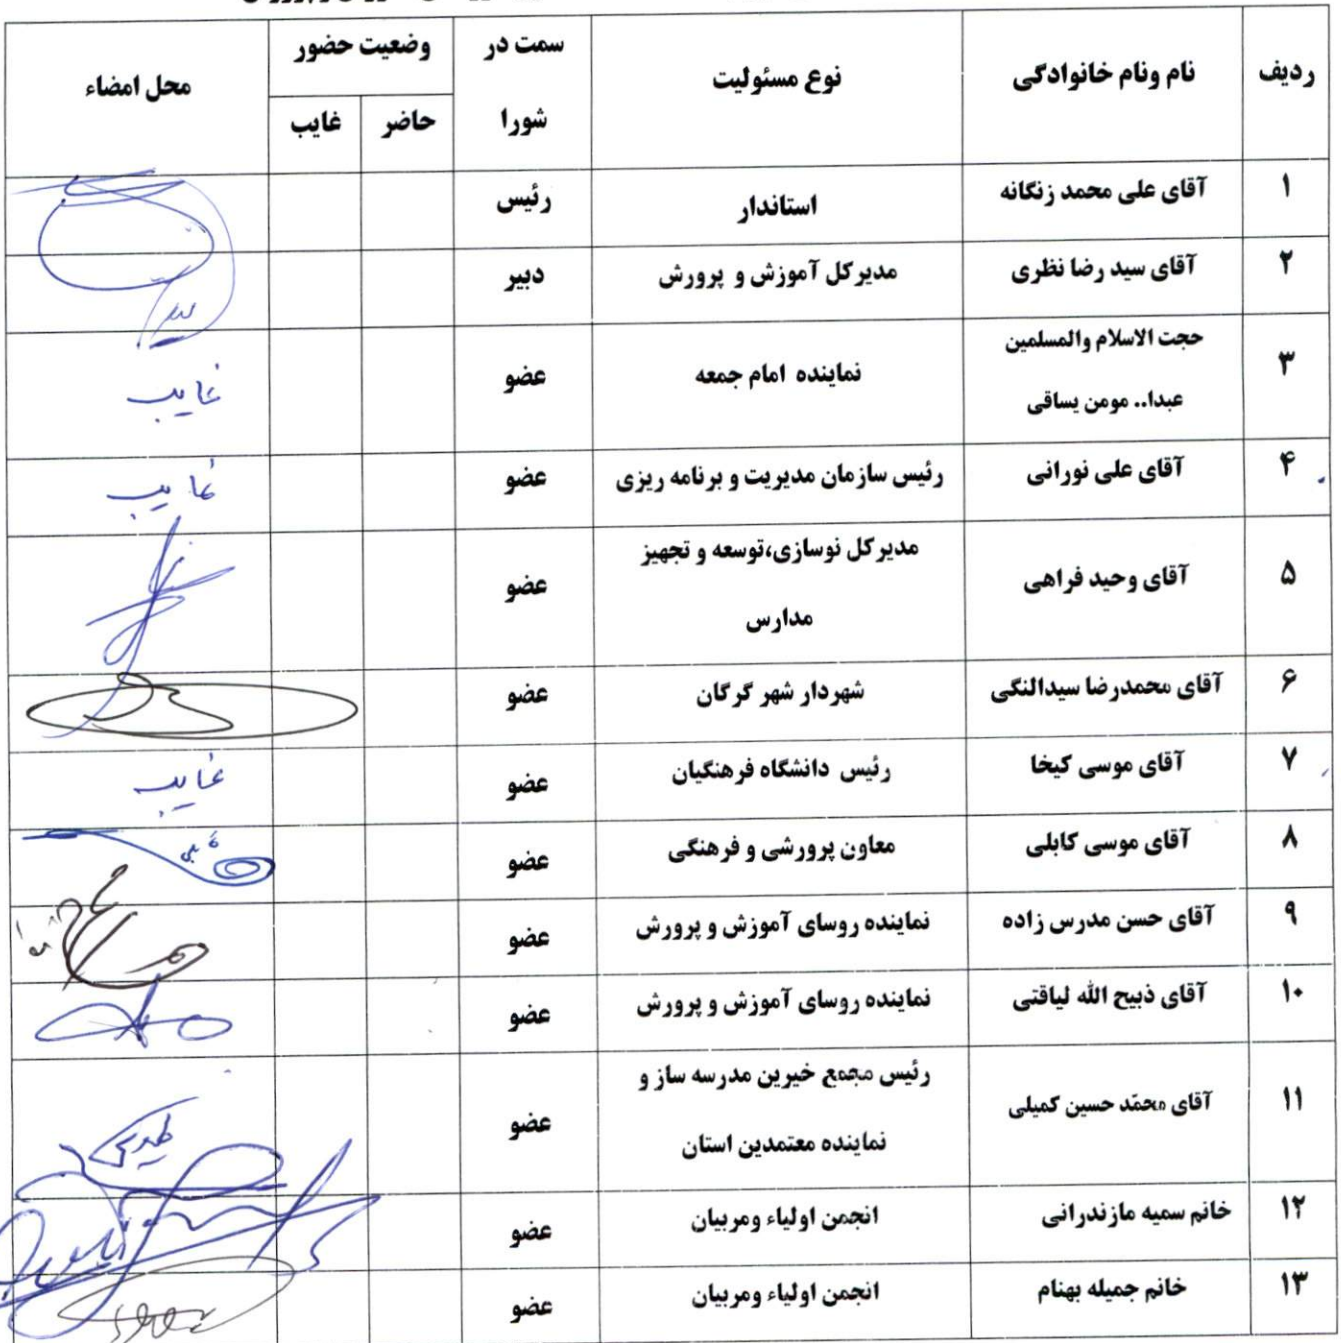 ردیف	نام ونام خانوادگی	نوع مسئولیت	سمت در شورا	وضعیت حضور	محل امضاء
حاضر	غایب
۱	آقای علی محمد زنگانه	استاندار	رئیس
۲	آقای سید رضا نظری	مدیرکل آموزش و پرورش	دبیر
۳	حجت الاسلام والمسلمین
عبدا.. مومن یساقی	نماینده امام جمعه	عضو	غایب
۴	آقای علی نورانی	رئیس سازمان مدیریت و برنامه ریزی	عضو	غایب
۵	آقای وحید فراهی	مدیرکل نوسازی،توسعه و تجهیز
مدارس	عضو
۶	آقای محمدرضا سیدالنگی	شهردار شهر گرگان	عضو
۷	آقای موسی کیخا	رئیس دانشگاه فرهنگیان	عضو	غایب
۸	آقای موسی کابلی	معاون پرورشی و فرهنگی	عضو
۹	آقای حسن مدرس زاده	نماینده روسای آموزش و پرورش	عضو
۱۰	آقای ذبیح الله لیاقتی	نماینده روسای آموزش و پرورش	عضو
۱۱	آقای محمّد حسین کمیلی	رئیس مجمع خیرین مدرسه ساز و
نماینده معتمدین استان	عضو
۱۲	خانم سمیه مازندرانی	انجمن اولیاء ومربیان	عضو
۱۳	خانم جمیله بهنام	انجمن اولیاء ومربیان	عضو